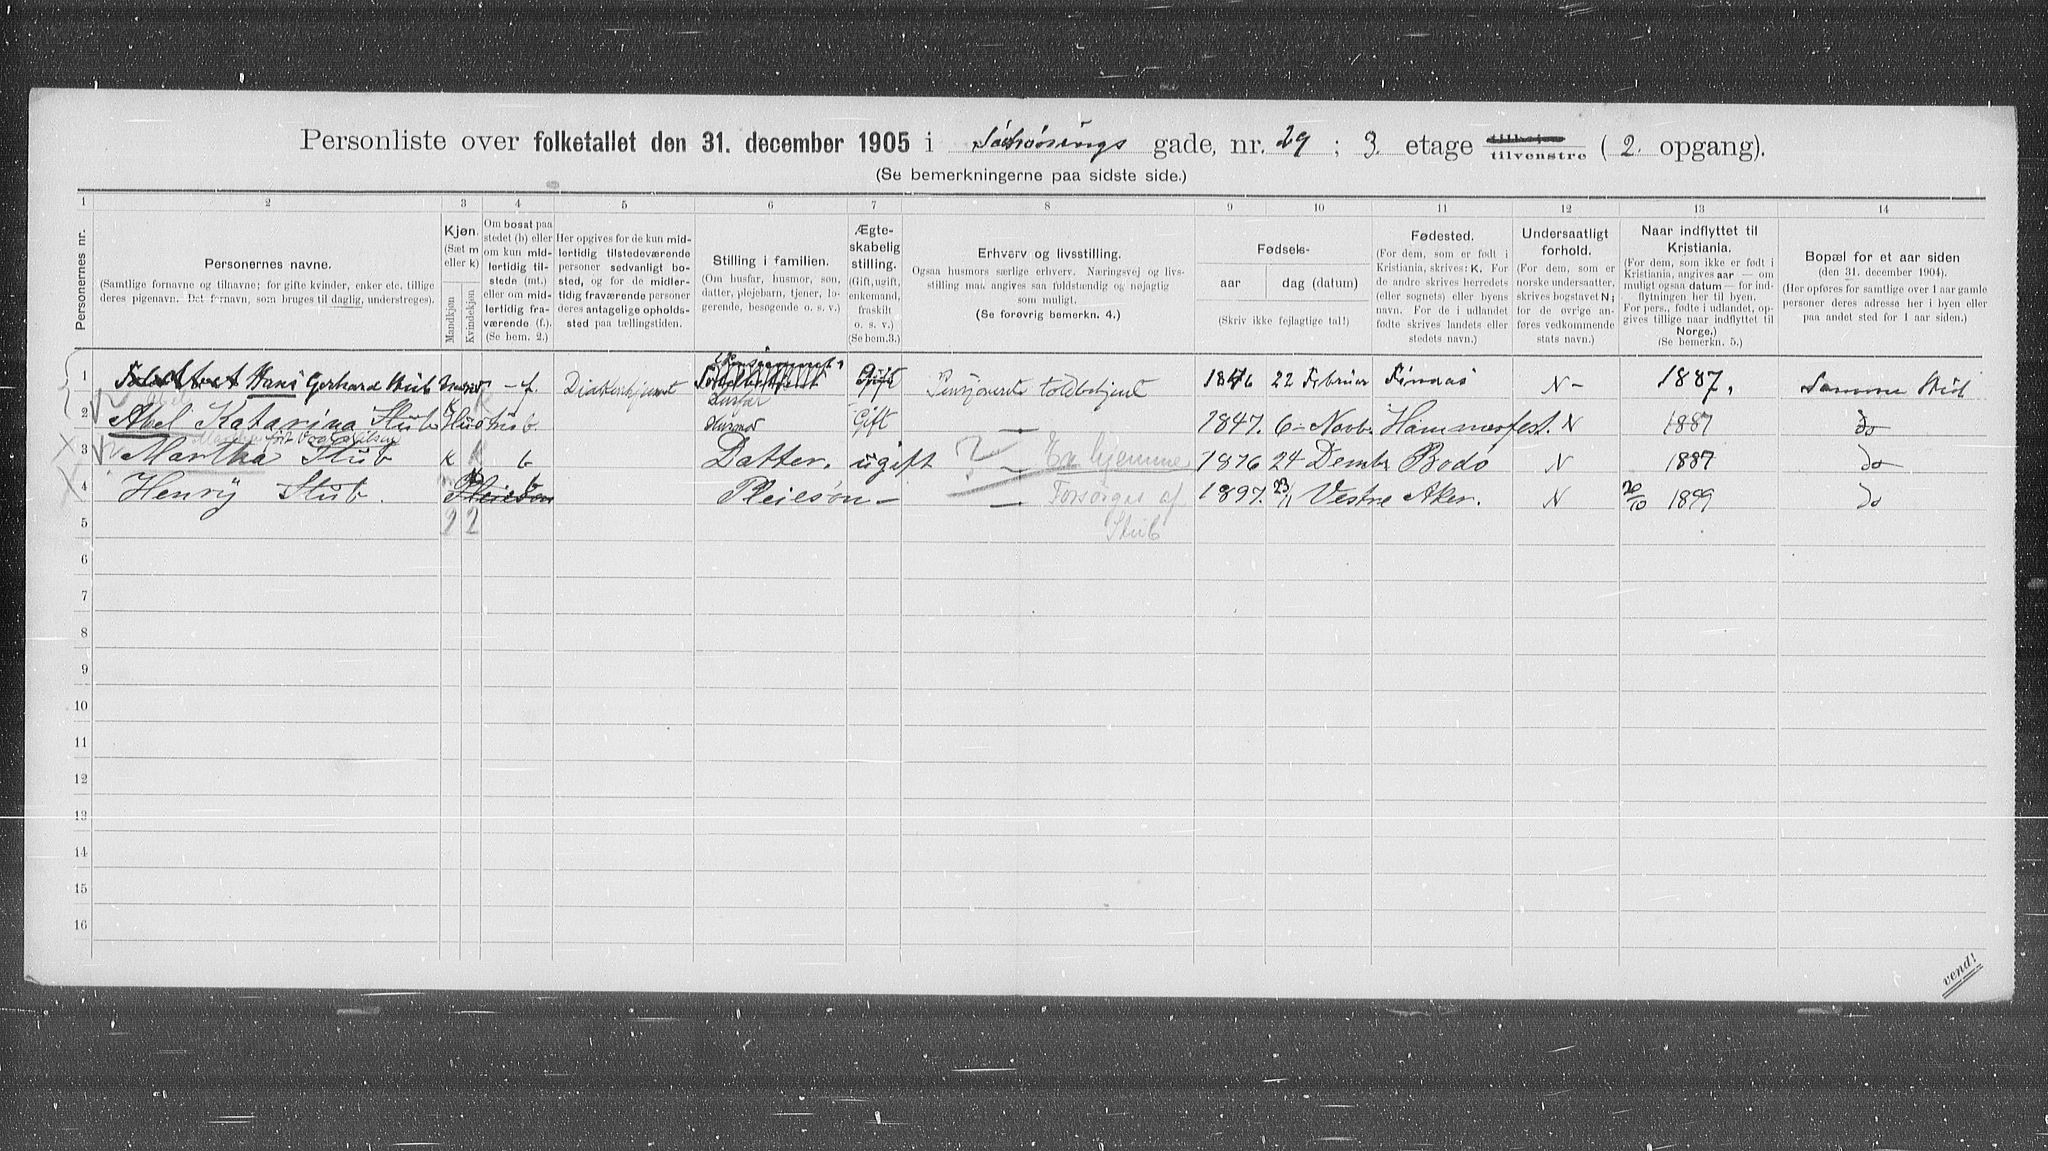 Personliste over folketallet den 31. december 1905 i Schønings gade, nr. 29 ; 3. etage tilhøire tilvenstre ( 2. opgang).
(Se bemerkningerne paa sidste side.)
1 2 3 4 5 6 7 8 9 10 11 12 13 14
Personernes nr.
Personernes navne.
(Samtlige fornavne og tilnavne; for gifte kvinder, enker etc. tillige deres pigenavn. Det fornavn, som bruges til daglig, understreges).
Kjøn.
(Sæt m eller k)
Mandkjøn
Kvindekjøn
Om bosat paa stedet (b) eller om kun midlertidig tilstede (mt.) eller om midlertidig fraværende (f.). (Se bem. 2.)
Her opgives for de kun midlertidig tilstedeværende personer sedvanligt bosted, og for de midlertidig fraværende personer deres antagelige opholdssted paa tællingstiden.
Stilling i familien.
(Om husfar, husmor, søn, datter, plejebarn, tjener, logerende, besøgende o. s. v.)
Ægteskabelig stilling.
(Gift, ugift, enkemand, fraskilt o. s. v.)
(Se bem.3.)
Erhverv og livsstilling.
Ogsaa husmors særlige erhverv. Næringsvej og livsstilling maa angives saa fuldstændig og nøjagtig som muligt.
(Se forøvrig bemerkn. 4.)
Fødsels-
aar dag (datum)
(Skriv ikke fejlagtige tal!)
Fødested.
(For dem, som er født i Kristiania, skrives: K. For de andre skrives herredets (eller sognets) eller byens navn. For de i udlandet fødte skrives landets eller stedets navn.)
Undersaatligt forhold.
(For dem, som er norske undersaatter, skrives bogstavet N; for de øvrige anføres vedkommende stats navn.)
Naar indflyttet til Kristiania.
(For dem, som ikke er født i Kristiania, angives aar — om muligt ogsaa datum — for indflytningen her til byen. For pers., fødte i udlandet, opgives tillige naar indflyttet til Norge.)
(Se bemerkn. 5.)
Bopæl for et aar siden
(den 31. december 1904).
(Her opføres for samtlige over 1 aar gamle personer deres adresse her i byen eller paa andet sted for 1 aar siden.)
1 Hans Gerhard Stub - f. Diakonhjemmet Husfar Gift Pensjoneret toldbetjent 1846 22 Februar N - 1887. Samme Sted
2 Abel Katarina Stub b. Husmor Gift — 1847. 6 - Novb. Hammerfest. N 1887 do
3 Martha Stub k b Datter. ugift — ? En hjemme 1876 24 Dembr Bodø N 1887 do
4 Henry Stub. b Pleiesøn — — Forsørges af Stub 1897. 23/11 Vestre Aker. N 20/10 1899 do
5 2 2
6
7
8
9
10
11
12
13
14
15
16
vend!